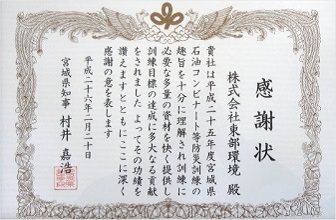 感謝状
株式会社東部環境 殿
貴社は平成二十五年度宮城県
石油コンビナート等防災訓練の
趣旨を十分に理解され訓練に
必要な多量の資材を快く提供し
訓練目標の達成に多大なる貢献
をされました よってその功績を
讃えますとともにここに深く
感謝の意を表します
平成二十六年二月二十日
宮城県知事 村井 嘉浩